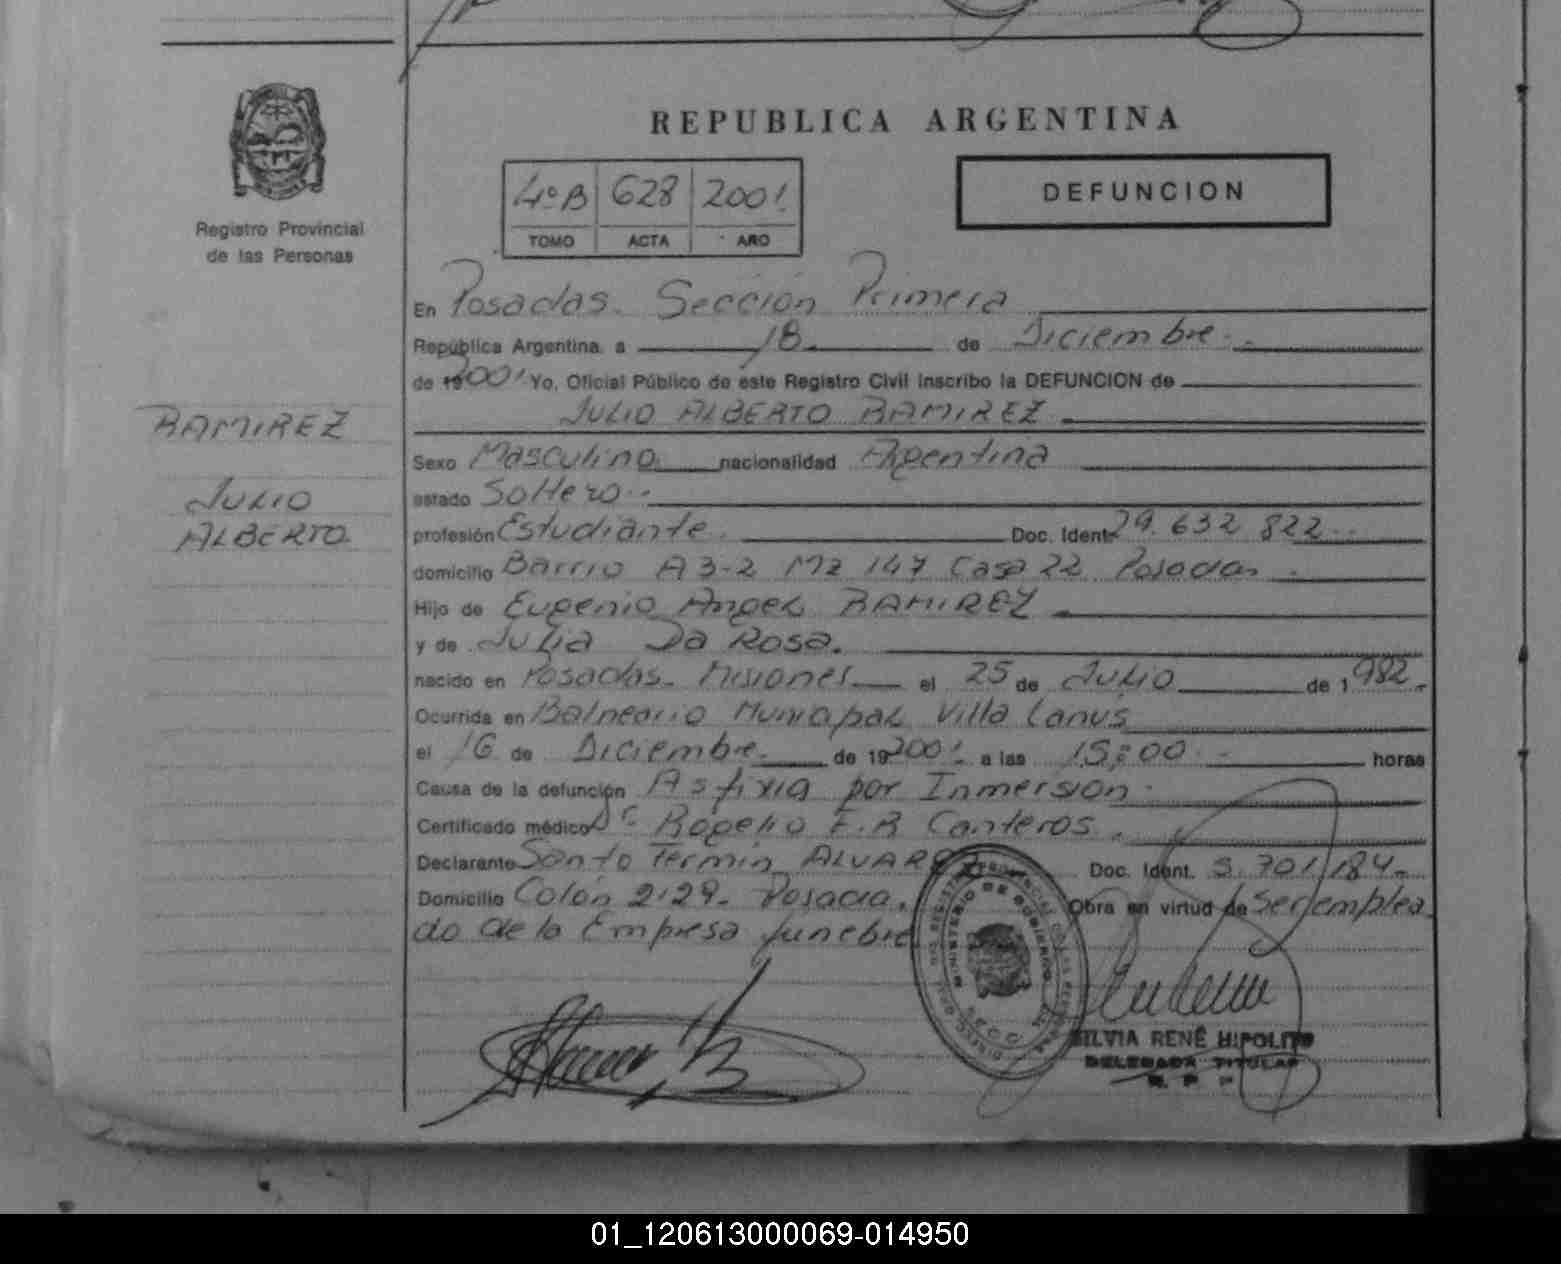 REPUBLICA ARGENTINA
4ºB 628 2001
TOMO ACTA AÑO
DEFUNCION
Registro Provincial
de las Personas
En Posadas. Sección Primera
República Argentina, a 18 de Diciembre
de 192001 Yo, Oficial Público de este Registro Civil inscribo la DEFUNCION de
JULIO ALBERTO RAMIREZ
RAMIREZ
JULIO
ALBERTO
Sexo Masculino nacionalidad Argentina
estado Soltero
profesión Estudiante Doc. Ident. 29.632 822
domicilio Barrio A 3-2 Mz 147 Casa 22 Posadas
Hijo de Eugenio Angel RAMIREZ
y de Julia Da Rosa.
nacido en Posadas. Misiones el 25 de Julio de 1982
Ocurrida en Balneario Municipal Villa Lanus
el 16 de Diciembre de 192001 a las 15:00 horas
Causa de la defunción Asfixia por Inmersion
Certificado médico Dr Rogelio E.R Canteros
Declarante Santo Fermin ALVAREZ Doc. Ident. 5.701.184
Domicilio Colón 2129. Posadas. Obra en virtud de Ser emplea
do de la Empresa funebre
MINISTERIO DE GOBIERNO
SILVIA RENÉ HIPOLITO
DELEGADA TITULAR
01_120613000069-014950